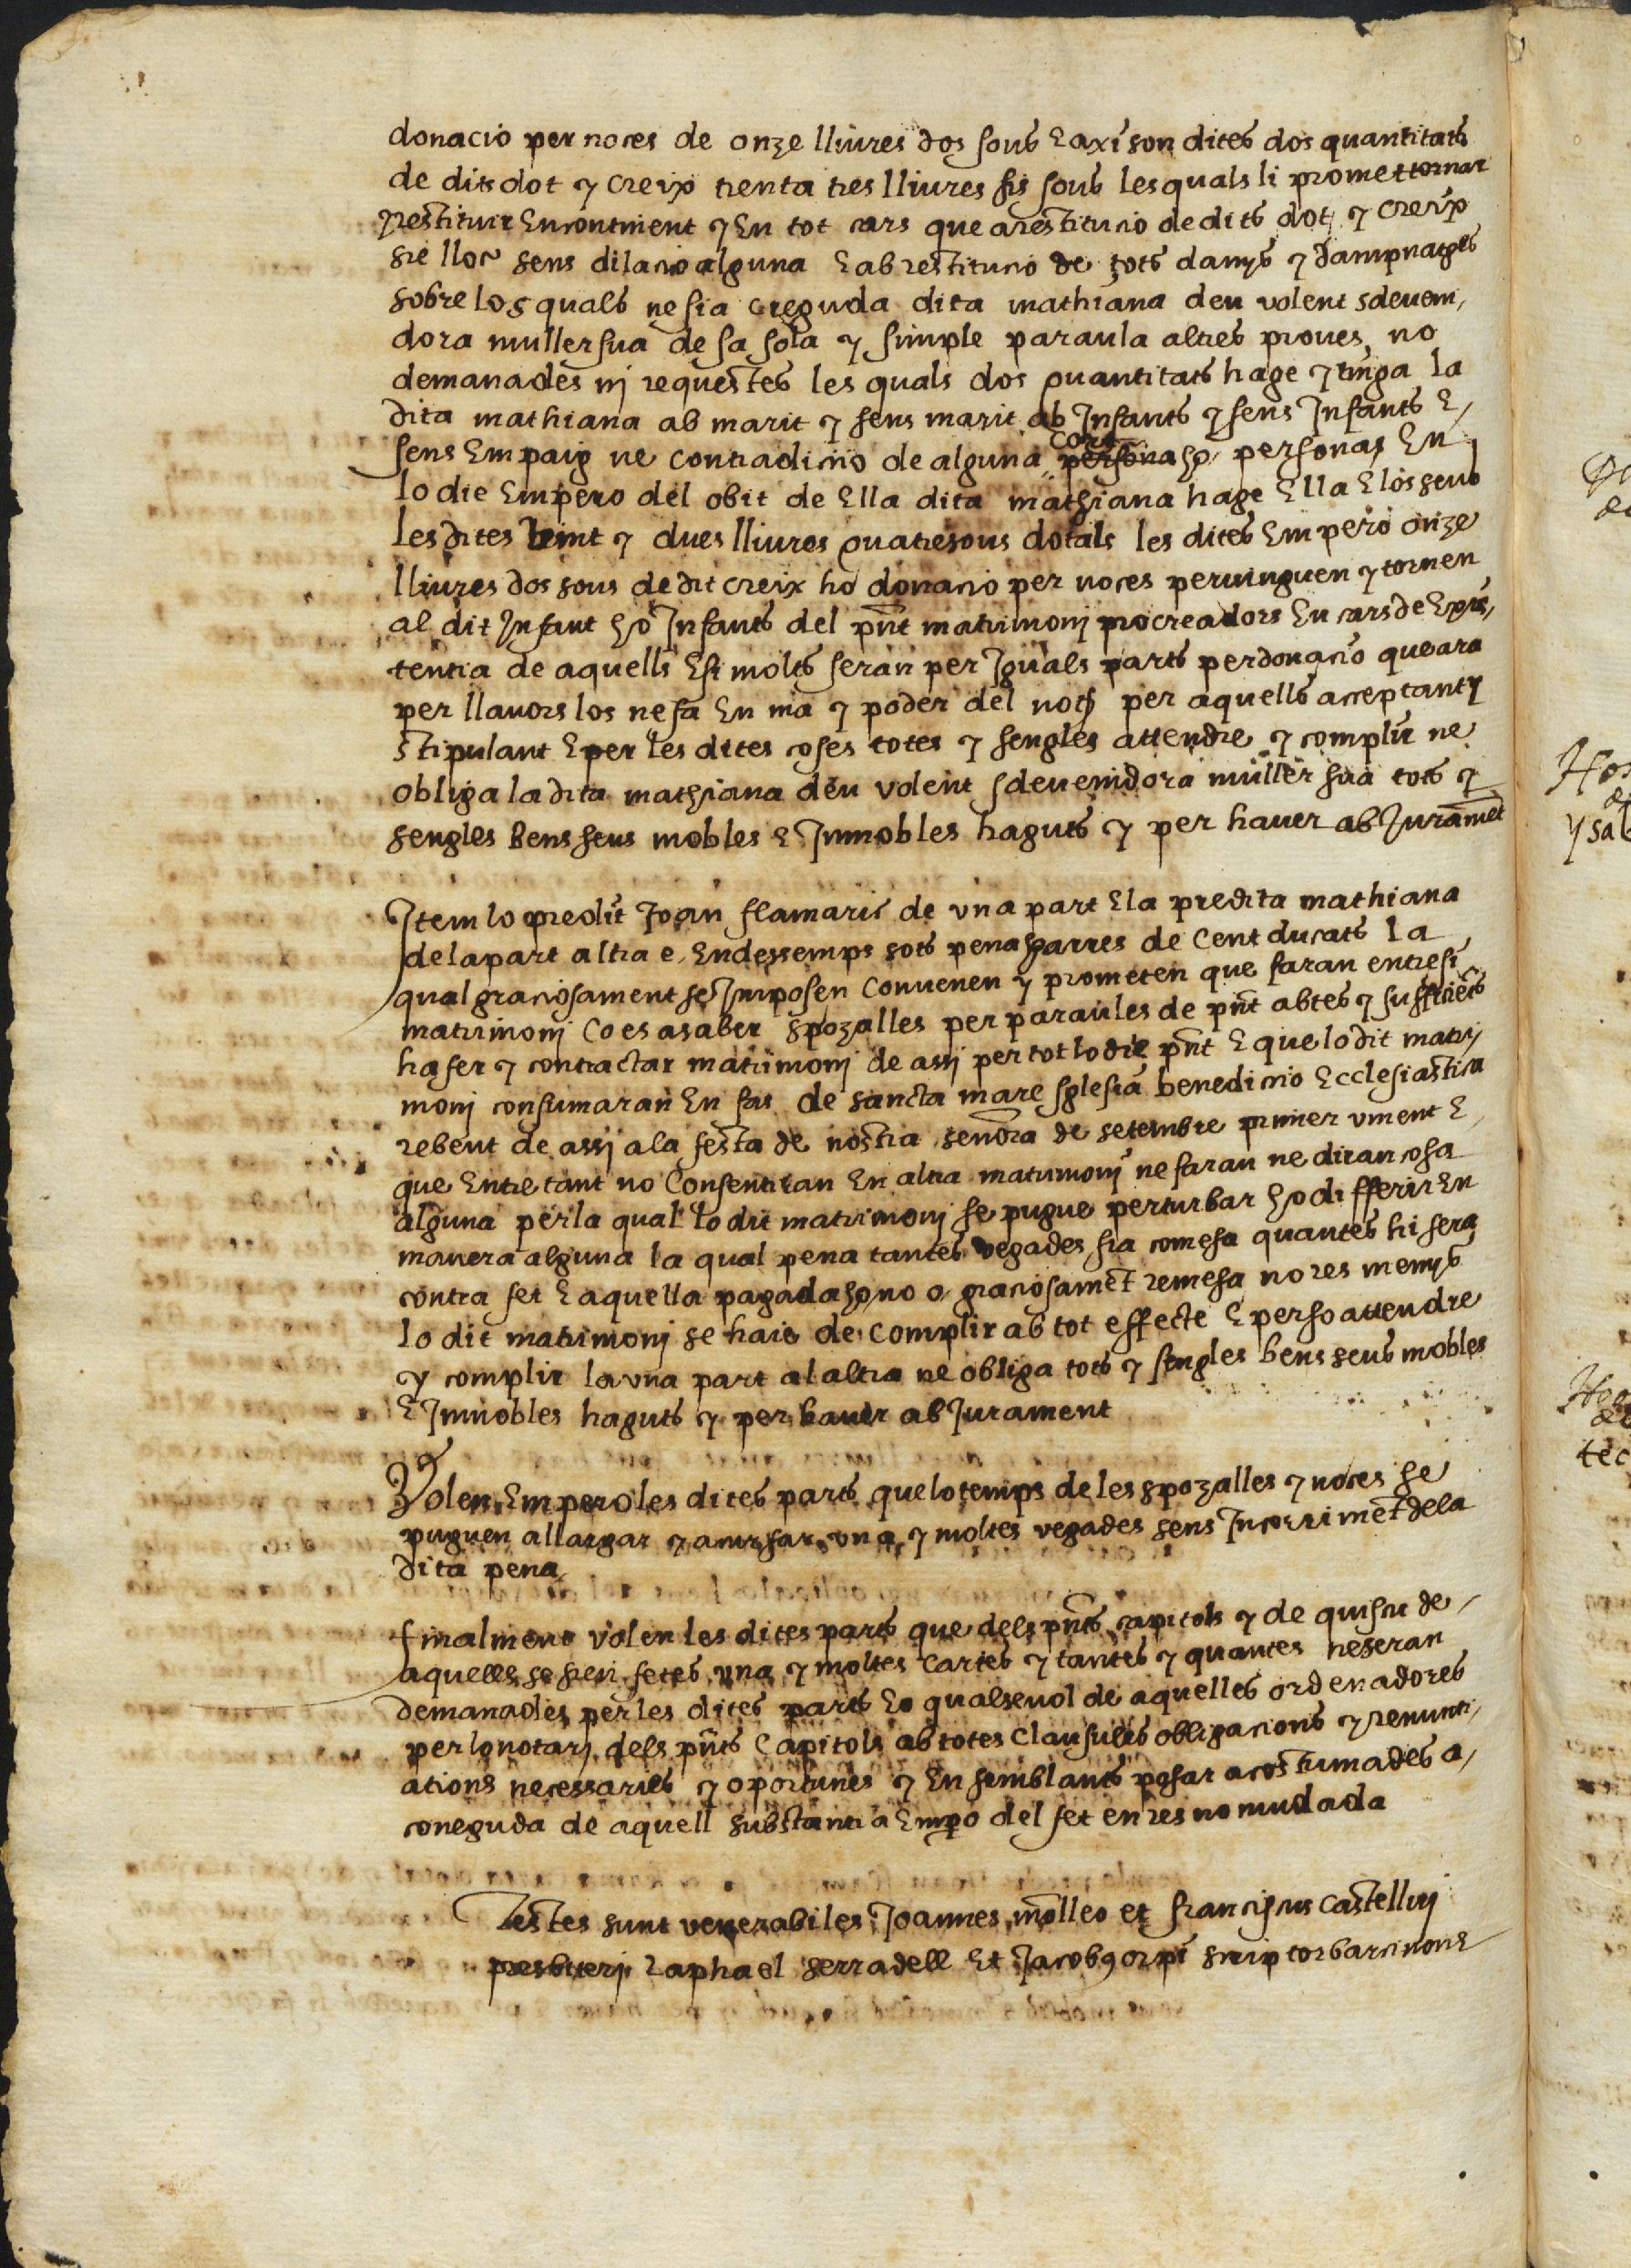 donacio per noces de onze lliures dos sous E axi son dites dos quantitats
de dits dot y creix trenta tres lliures sis sous les quals li promet tornar
y restituir Encontinent y En tot cars que a restitucio de dits dot y creix
sie lloc sens dilacio alguna E ab restitucio de tots danys y dampnatges
sobre los quals ne sia creguda dita mathiana deu volent sdeveni,
dora muller sua de sa sola y simple paraula altres proves no
demanades nj requestes les quals dos quantitats hage y tinga la
dita mathiana ab marit y sens marit ab Infants y sens Infants E
sens Empaig ne contradictio de alguna persona ho personas En
cort
lo die Empero del obit de Ella dita mathiana hage Ella E los seus
les dites vint y dues lliures quatre sous dotals les dites Empero onze
lliures dos sous de dit creix ho donacio per noces pervinguen y tornen
al dit Infant ho Infants del pnt matrimonj procreadors En cars de Exis,
tentia de aquells E si molts seran per Iguals parts per donacio que ara
per llavors los ne fa En ma y poder del not per aquells acceptant y
stipulant E per les dites coses totes y sengles attendre y complir ne
obliga la dita mathiana deu volent sdevenidora muller sua tots y
sengles bens seus mobles E Inmobles haguts y per haver ab Jurament
Item lo predit Joan flamaric de una part E la predita mathiana
de la part altra e Endessemps sots pena y arres de Cent ducats la
qual graciosament se Imposen Convenen y prometen que faran entre si
matrimonj Co es a saber spozalles per paraules de pnt abtes y sufficiets
ha fer y contractar matrimonj de assi per tot lo die pnt E que lo dit matri
monj consumaran En fas de sancta mare sglesia benedictio Ecclesiastica
rebent de assj a la festa de nostra senora de setembre primer vinent E
que Entretant no Consentiran En altra matrimonj ne faran ne diran cosa
alguna per la qual lo dit matrimonj se pugue perturbar ho differir En
manera alguna la qual pena tantes vegades sia comesa quantes hi sera
contra fet E aquella pagada ho no o graciosamet remesa no res menys
lo dit matrimonj se haie de complir ab tot effecte E per so attendre
y complir la una part al altra ne obliga tots y sengles bens seus mobles
E Inmobles haguts y per haver ab Jurament
Volen Empero les dites parts que lo temps de les spozalles y noces se
puguen allargar y una y moltes vegades sens Incorrimet de la
dita pena
finalment volen les dites parts que dels pnts capitols y de quiscu de
aquells se sien fetes una y moltes cartes y tantes y quantes ne seran
demanades per les dites parts ho qualsevol de aquelles ordenadores
per lo notarj dels pnts Capitols ab totes Clausules obligacions y renunti,
ations necessaries y oportunes y En semblants posar acostumades a,
coneguda de aquell substantia Empo del fet en res no mudada
Testes sunt venerabiles Joannes molleo et franciscus castellvj
presbiterj raphael serradell Et Jacobus orpi scriptor barcinone